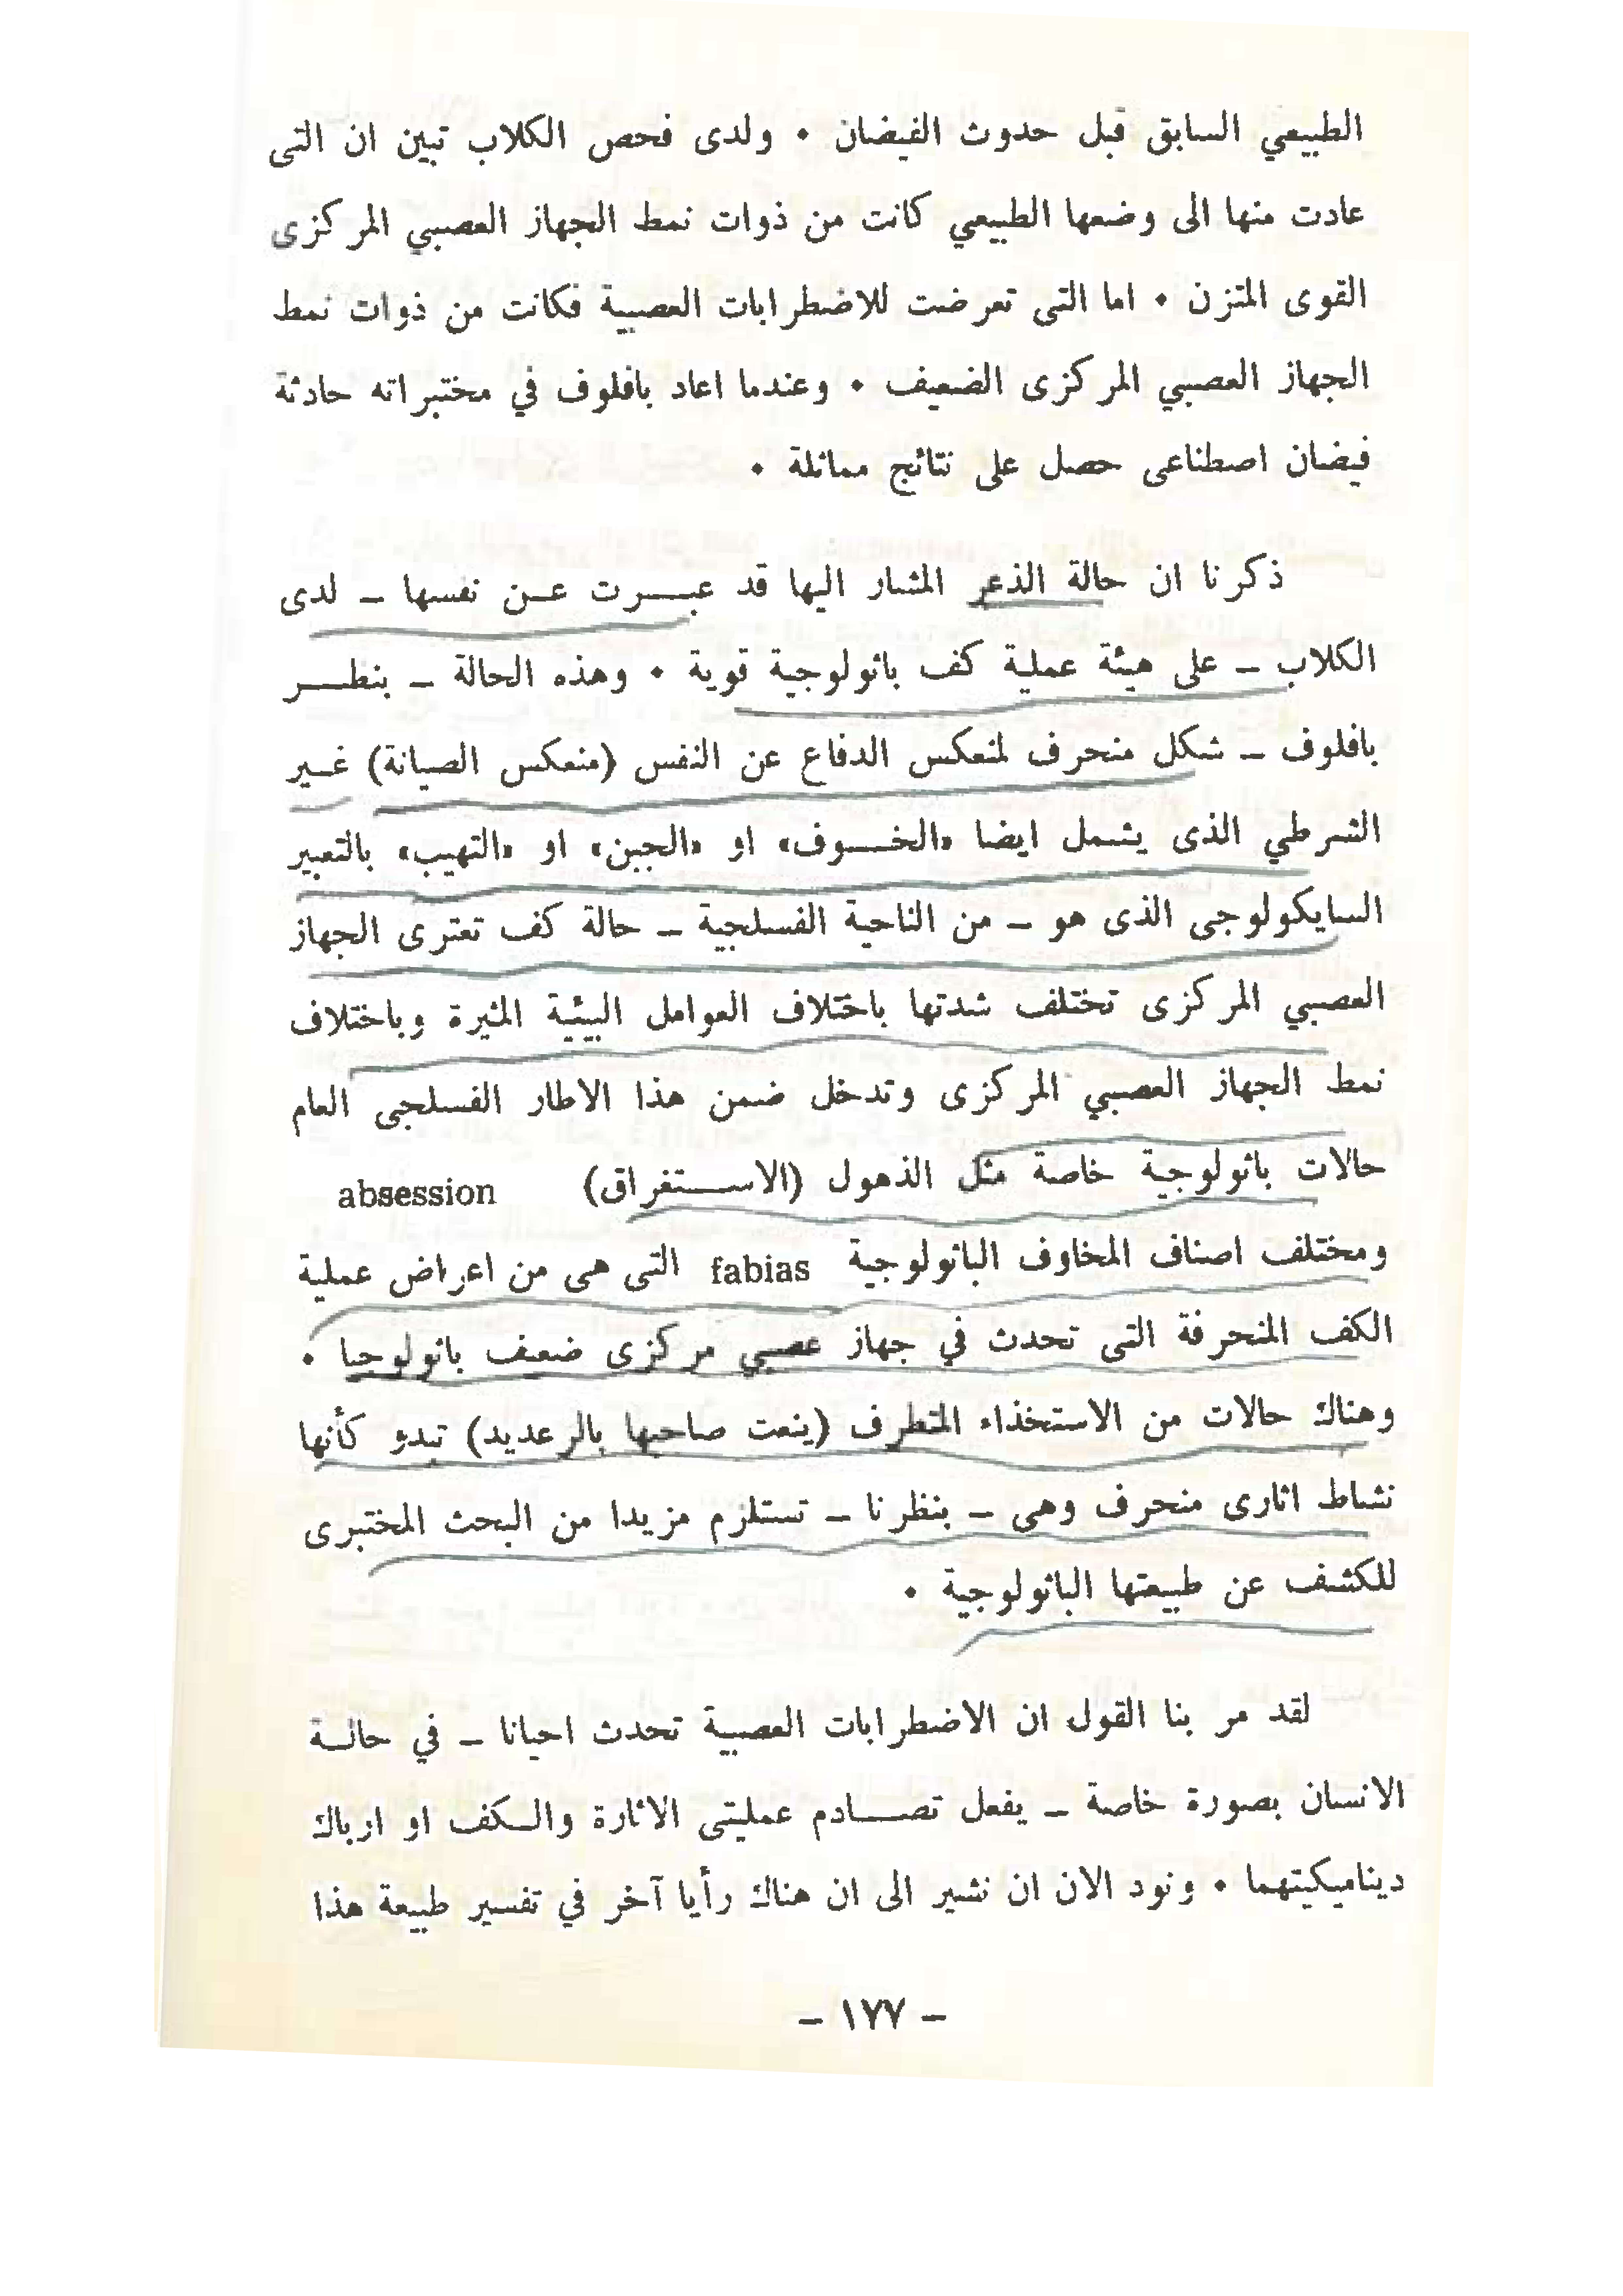 الطبيعي السابق قبل حدوث الفيضان • ولدى فحص الكلاب تبين ان التى
عادت منها الى وضعها الطبيعي كانت من ذوات نمط الجهاز العصبي المركزى
القوى المتزن • اما التى تعرضت للاضطرابات العصبية فكانت من ذوات نمط
الجهاز العصبي المركزى الضعيف • وعندما اعاد بافلوف في مختبراته حادثة
فيضان اصطناعى حصل على نتائج مماثلة •
ذكرنا ان حالة الذعر المشار اليها قد عبـــرت عـن نفسها ـ لدى
الكلاب ـ على هيئة عملية كف باثولوجية قوية • وهذه الحالة ـ بنظـــر
بافلوف ـ شكل منحرف لمنعكس الدفاع عن النفس (منعكس الصيانة) غـير
الشرطي الذى يشمل ايضا «الخـــوف» او «الجبن» او «التهيب» بالتعبير
السايكولوجى الذى هو ـ من الناحية الفسلجية ـ حالة كف تعترى الجهاز
العصبي المركزى تختلف شدتها باختلاف العوامل البيئية المثيرة وباختلاف
نمط الجهاز العصبي المركزى وتدخل ضمن هذا الاطار الفسلجى العام
حالات باثولوجية خاصة مثل الذهول (الاســـتغراق) absession
ومختلف اصناف المخاوف الباثولوجية fabias التى هى من اعراض عملية
الكف المنحرفة التى تحدث في جهاز عصبي مركزى ضعيف باثولوجيا •
وهناك حالات من الاستخذاء المتطرف (ينعت صاحبها بالرعديد) تبدو كأنها
نشاط اثارى منحرف وهى ـ بنظرنا ـ تستلزم مزيدا من البحث المختبرى
للكشف عن طبيعتها الباثولوجية •
لقد مر بنا القول ان الاضطرابات العصبية تحدث احيانا ـ في حالـة
الانسان بصورة خاصة ـ يفعل تصـــادم عمليتى الاثارة والـكف او ارباك
ديناميكيتهما • ونود الان ان نشير الى ان هناك رأيا آخر في تفسير طبيعة هذا
ـ ١٧٧ ـ